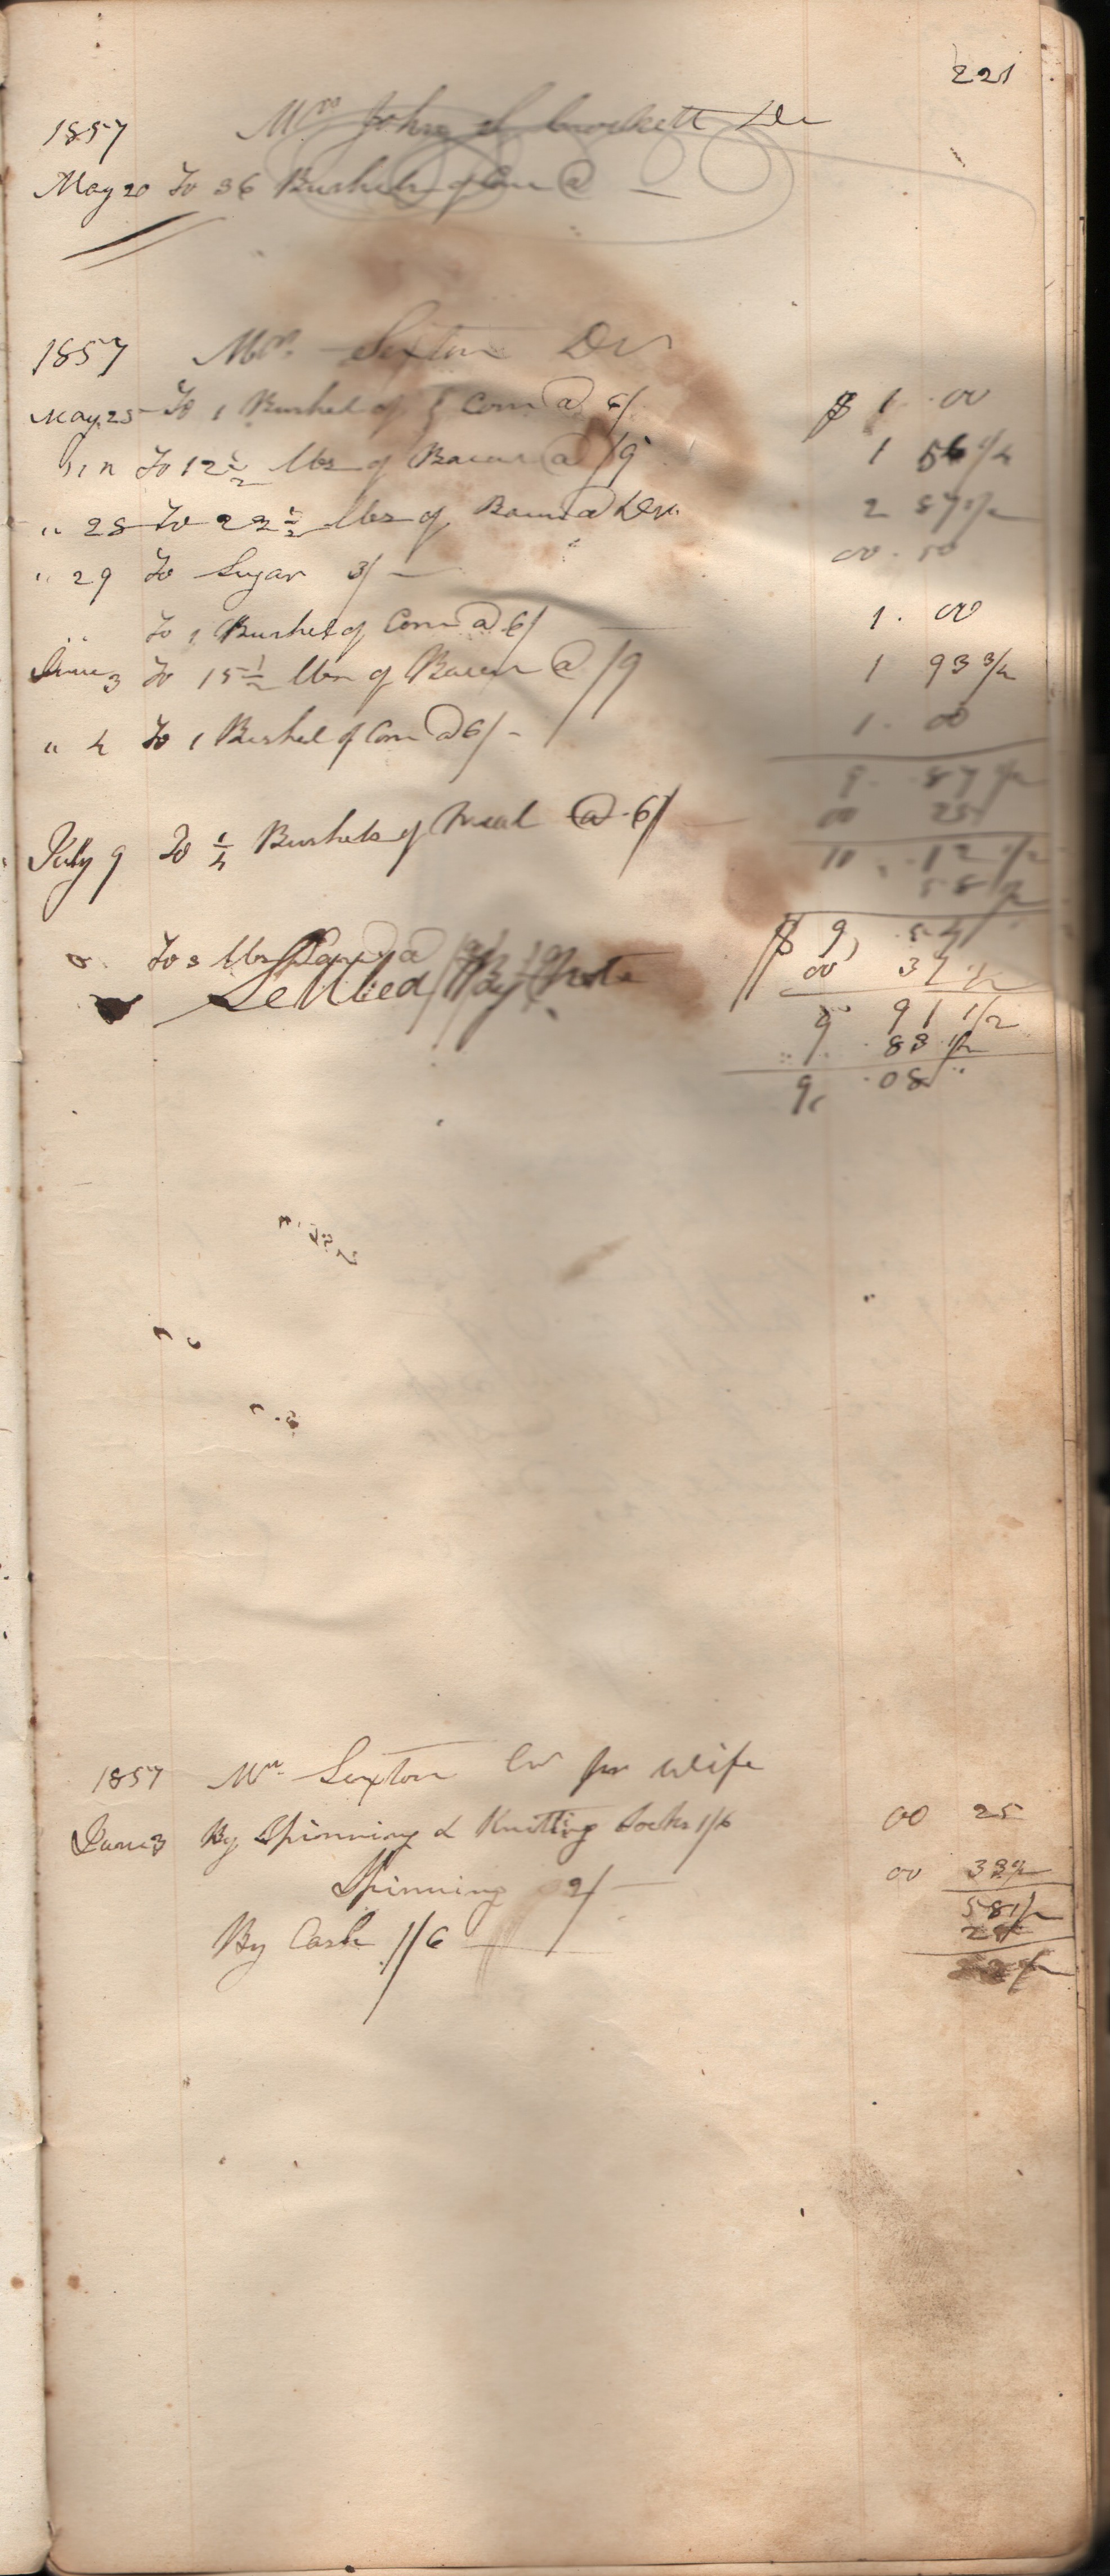 221
1857 Mrs John S Crockett Dr
May 20 To 36 Bushels of Corn @ —
1857 Mrs. Sexton Dr
May 25 To 1 Bushel of Corn @ 6/ $ 1 . 00
To 12 1/2 lbs of Bacon @ /9 1 56 1/4
" 28 To 22 1/2 lbs of Bacon @ Do. 2 87 1/2
" 29 To Sugar 3/ — 00 . 50
" To 1 Bushel of Corn @ 6/ 1 . 00
June 3 To 15 1/2 lbs of Bacon @ /9 1 93 3/4
" 4 To 1 Bushel of Corn @ 6/ - 1 . 00
9 . 87 1/2
00 25
July 9 To 1/4 Bushels of Meal @ 6/ 10 . 12 1/2
58 1/2
$ 9, 54
To 3 lbs @ 00 37 1/2
Settled By Note
9 91 1/2
. 83 1/2
9 . 08
1857 Mrs Sexton Cr for Wife
June 3 By Spinning & Knitting Socks 1/6 00 25
Spinning 2/ — 00 33 1/2
58 1/2
By Cash 1/6 25